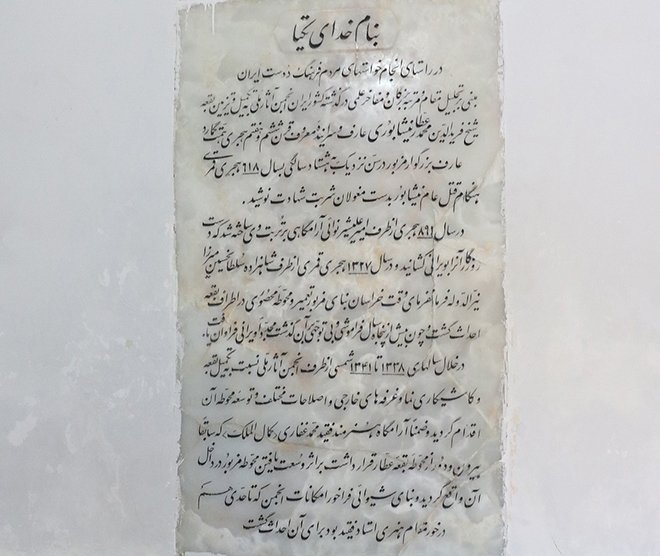 بنام خدای یکتا
در راستای انجام خواستهای مردم فرهنگ دوست ایران
مبنی بر تجلیل مقام و مرتبه بزرگان و مفاخر علمی در گذشته کشور ایران انجمن آثار ملی به تکمیل و تزیین بقعه
شیخ فریدالدین محمد عطار نیشابوری عارف و سراینده معروف قرن ششم و هفتم هجری همت گمارد
عارف بزرگوار مزبور در سن نزدیک به هشتاد سالگی بسال ۶۱۸ هجری قمری
هنگام قتل عام نیشابور بدست مغولان شربت شهادت نوشید .
در سال ۸۹۱ هجری از طرف امیر علیشیر نوائی آرامگاهی بر تربت وی ساخته شد که دست
روزگار آنرا بویرانی کشانید و در سال ۱۳۲۷ هجری قمری از طرف شاهزاده سلطانحسین میرزا
نیرالدوله فرمانفرمای وقت خراسان بنای مزبور تعمیر و محوطه محصوری در اطراف بقعه
احداث گشت و چون بیش از پنجاه سال فراموشی و بی توجهی بر آن گذشت مجدداً ویرانی فراوان یافت
در خلال سالهای ۱۳۳۸ تا ۱۳۴۱ شمسی از طرف انجمن آثار ملی نسبت به تکمیل بقعه
و کاشیکاری نما و غرفه های خارجی و اصلاحات مختلف و توسعه محوطه آن
اقدام گردید و ضمناً آرامگاه هنرمند فقید محمد غفاری (کمال الملک) که سابقاً
بیرون و دور از محوطه بقعه عطار قرار داشت بر اثر وسعت یافتن محوطه مزبور در داخل
آن واقع گردید و بنای شیوائی فراخور امکانات انجمن که تا حدی هم
در خور مقام هنری استاد فقید بود برای آن احداث گشت